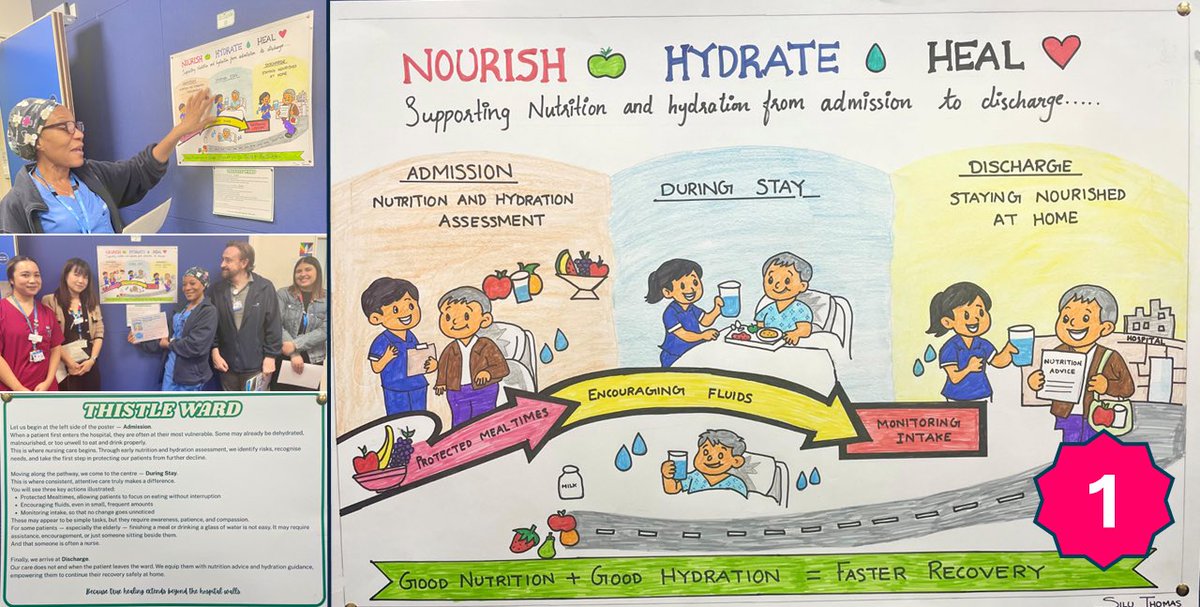 NOURISH HYDRATE HEAL
Supporting Nutrition and hydration from admission to discharge.....
ADMISSION
NUTRITION AND HYDRATION
ASSESSMENT
DURING STAY
DISCHARGE
STAYING NOURISHED
AT HOME
HOSPITAL
NUTRITION
ADVICE
PROTECTED MEALTIMES
ENCOURAGING FLUIDS
MONITORING
INTAKE
MILK
1
GOOD NUTRITION + GOOD HYDRATION = FASTER RECOVERY
SILU THOMAS
NOURISH HYDRATE HEAL
Supporting Nutrition and hydration from admission to discharge
DISCHARGE
STAYING NOURISHED
AT HOME
NOURISH HYDRATE HEAL
THISTLE WARD
Let us begin at the left side of the poster — Admission.
When a patient first enters the hospital, they are often at their most vulnerable. Some may already be dehydrated,
malnourished, or too unwell to eat and drink properly.
This is where nursing care begins. Through early nutrition and hydration assessment, we identify risks, recognise
needs, and take the first step in protecting our patients from further decline.
Moving along the pathway, we come to the centre — During Stay.
This is where consistent, attentive care truly makes a difference.
You will see three key actions illustrated:
• Protected Mealtimes, allowing patients to focus on eating without interruption
• Encouraging fluids, even in small, frequent amounts
• Monitoring intake, so that no change goes unnoticed
These may appear to be simple tasks, but they require awareness, patience, and compassion.
For some patients — especially the elderly — finishing a meal or drinking a glass of water is not easy. It may require
assistance, encouragement, or just someone sitting beside them.
And that someone is often a nurse.
Finally, we arrive at Discharge.
Our care does not end when the patient leaves the ward. We equip them with nutrition advice and hydration guidance,
empowering them to continue their recovery safely at home.
Because true healing extends beyond the hospital walls.